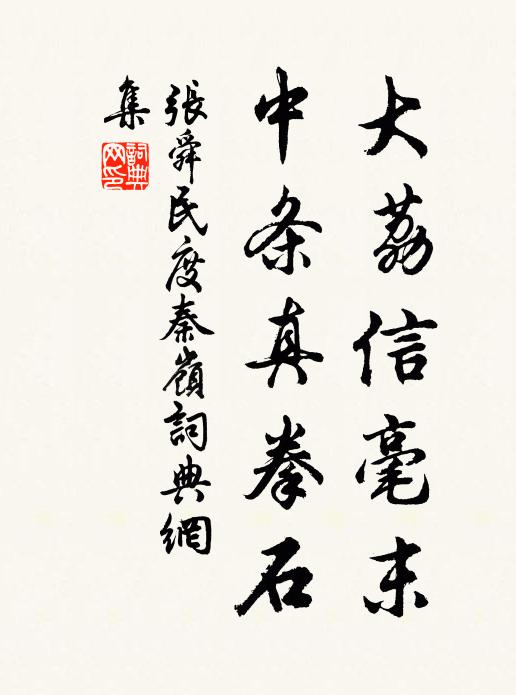 大荔信毫末
中条真拳石
張舜民度秦嶺詞典網
集
詞典网印